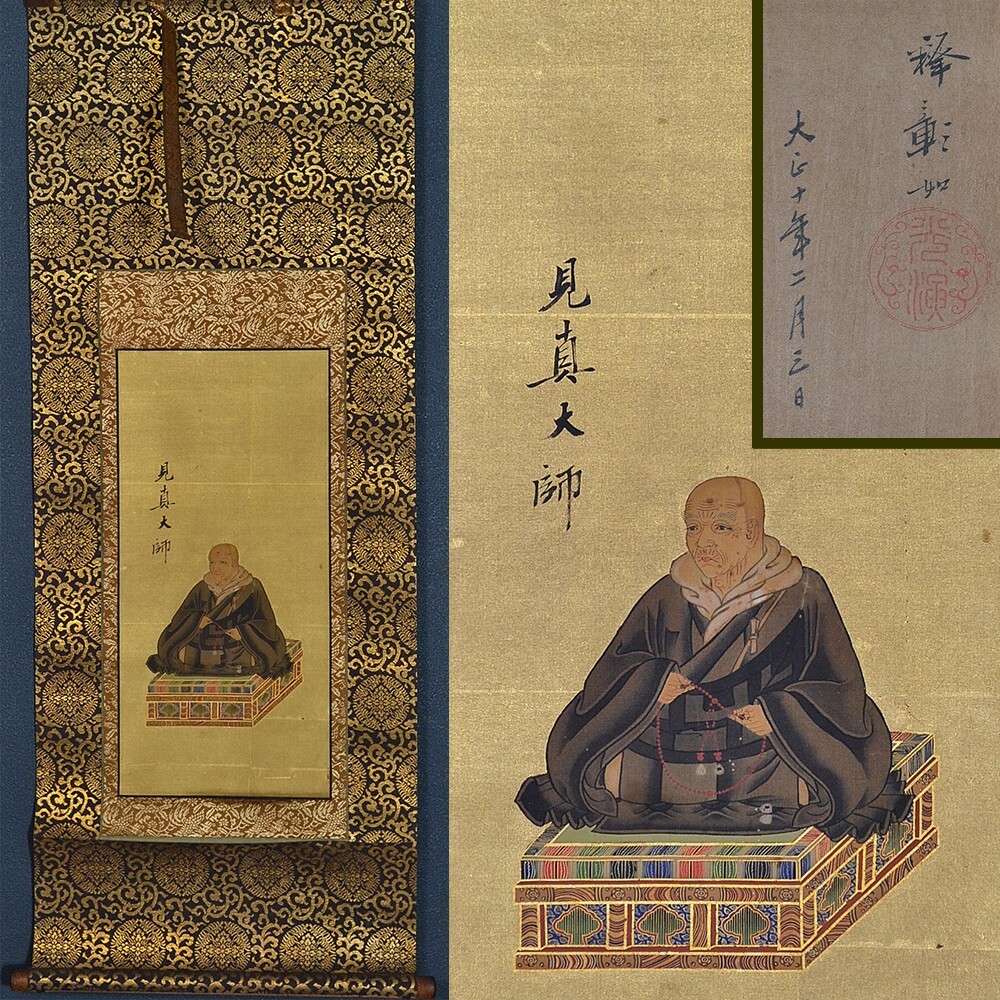 見真大師
見真大師
釋彰如
大正十年二月三日